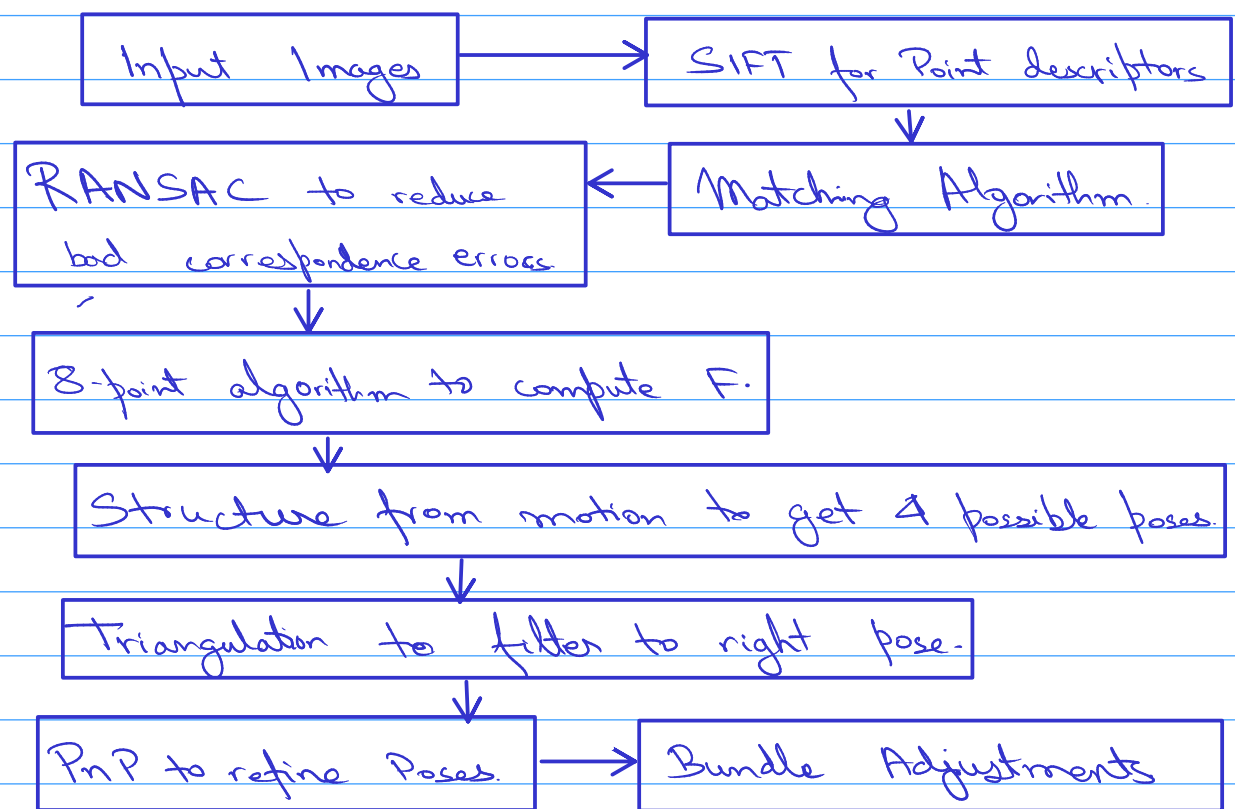 Input Images
SIFT for Point descriptors
Matching Algorithm.
RANSAC to reduce
bad correspondence errors
8-point algorithm to compute F.
Structure from motion to get 4 possible poses.
Triangulation to filter to right pose.
PnP to refine Poses.
Bundle Adjustments